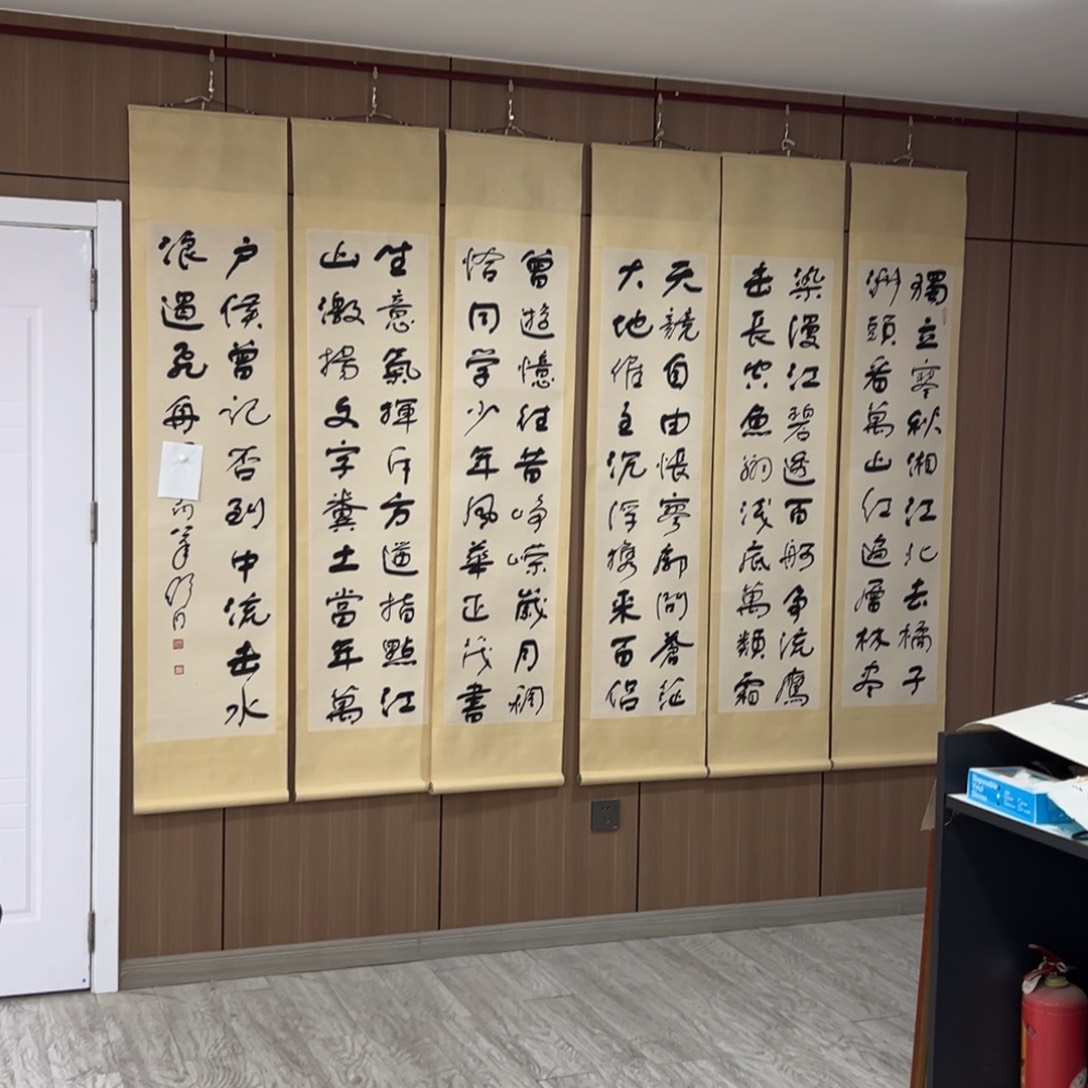 獨立寒秋湘江北去橘子
洲頭看萬山紅遍層林盡
染漫江碧透百舸争流鷹
击長空魚翔淺底萬類霜
天競自由悵寥廓問蒼茫
大地誰主沉浮攜来百侣
曾遊憶往昔崢嶸歲月稠
恰同学少年風華正茂書
生意氣揮斥方遒指點江
山激揚文字糞土當年萬
户侯曾記否到中流击水
浪遏飛舟
Disposable